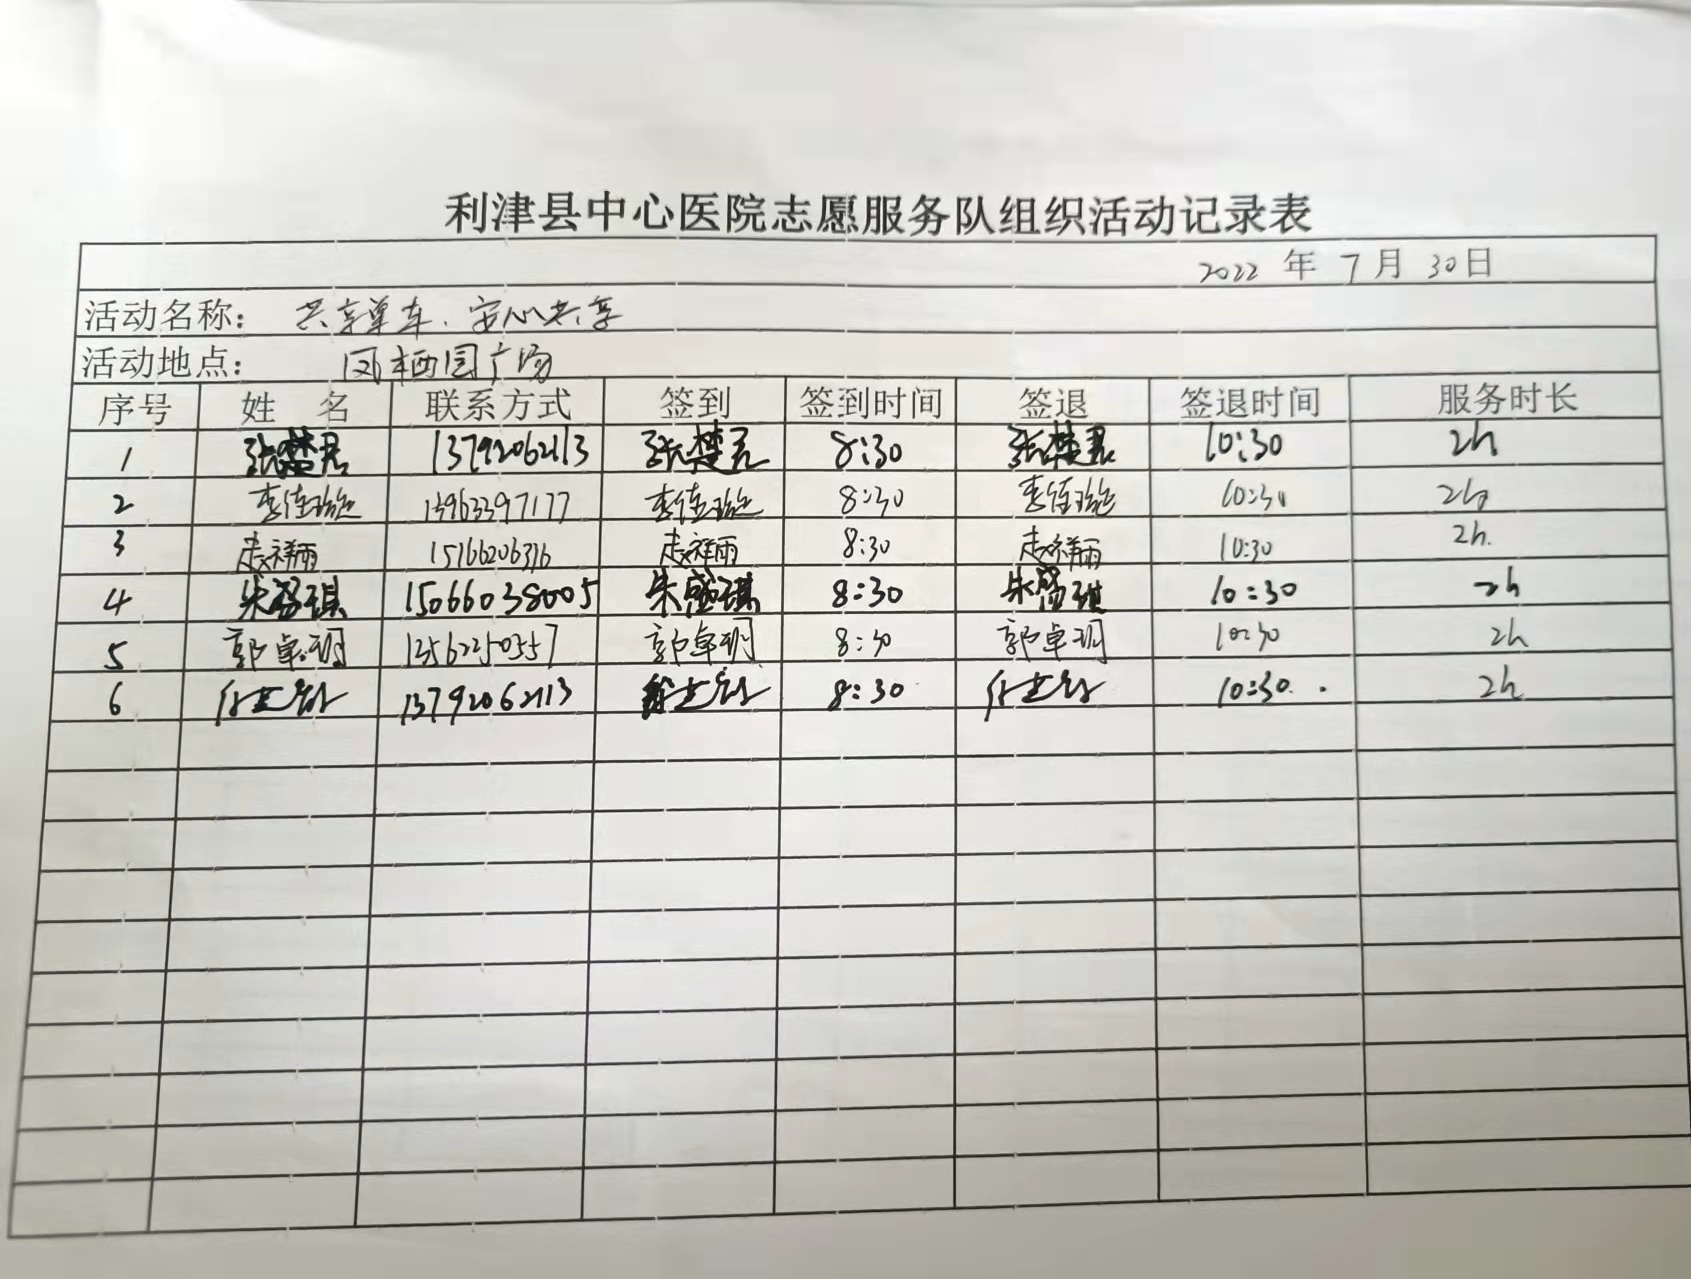 利津县中心医院志愿服务队组织活动记录表
2022 年 7 月 30日
活动名称： 共享单车、安心共享
活动地点： 凤栖园广场
序号 姓 名 联系方式 签到 签到时间 签退 签退时间 服务时长
1 张楚君 13792062113 张楚君 8:30 张楚君 10:30 2h
2 13963397177 8:30 10:30 2h
3 8:30 10:30 2h.
4 朱盛琪 15066038005 朱盛琪 8:30 朱盛琪 10:30 2h
5 郭卓玥 13562250557 郭卓玥 8:30 郭卓玥 10:30 2h
6 13792062113 8:30 10:30. 2h